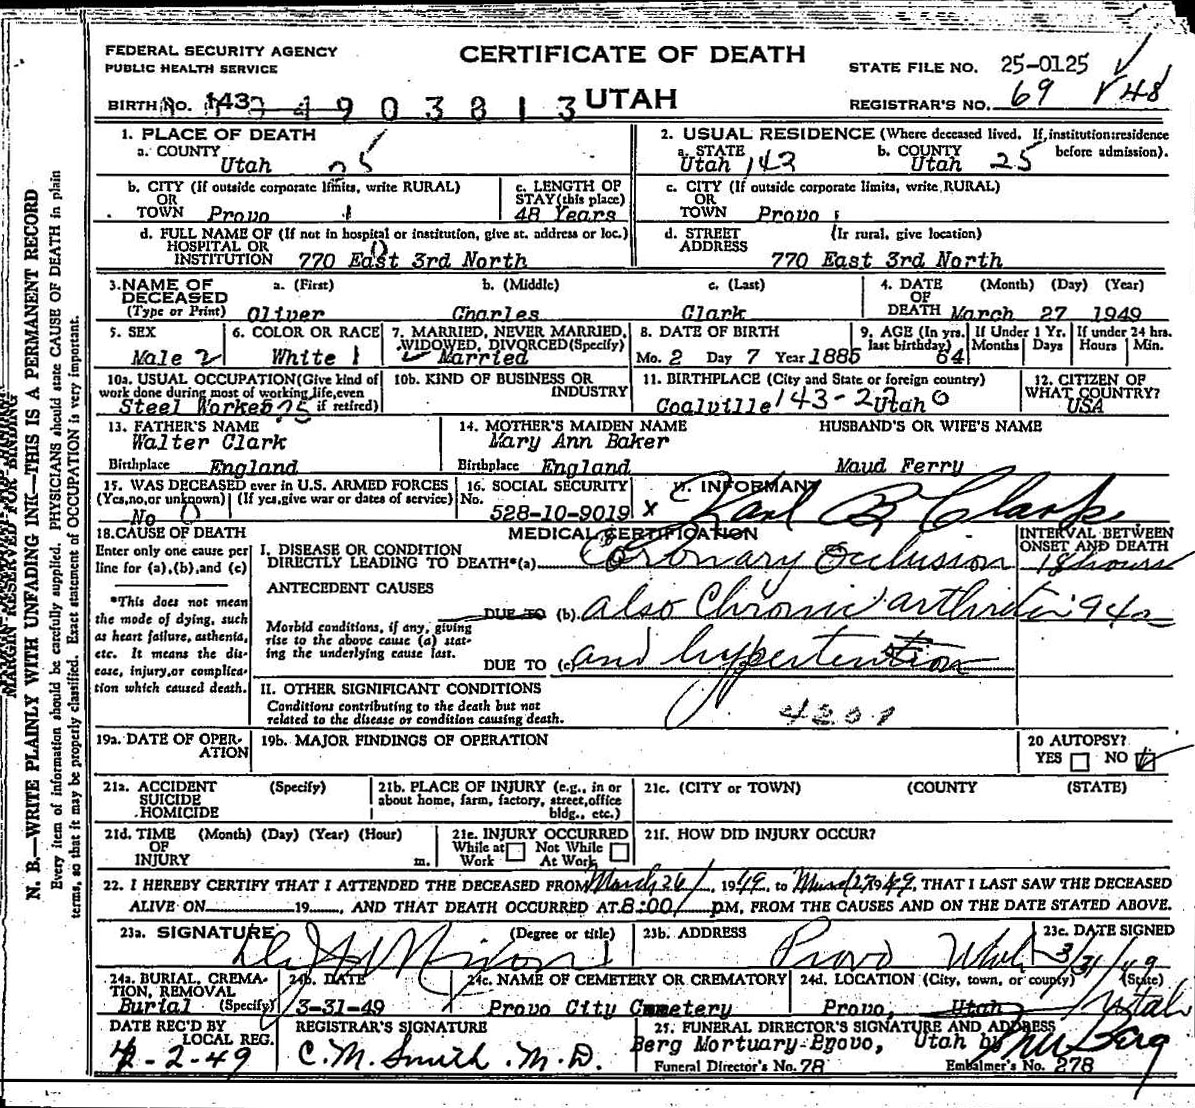 FEDERAL SECURITY AGENCY
PUBLIC HEALTH SERVICE
CERTIFICATE OF DEATH
STATE FILE NO. 25-0125
BIRTH No. 143
4903813 UTAH
REGISTRAR'S NO. 69 48
1. PLACE OF DEATH
a. COUNTY
Utah 25
2. USUAL RESIDENCE (Where deceased lived. If institution: residence before admission).
a. STATE b. COUNTY
Utah 143 Utah 25
b. CITY (If outside corporate limits, write RURAL)
OR
TOWN Provo 1
c. LENGTH OF
STAY (this place)
48 Years
c. CITY (If outside corporate limits, write RURAL)
OR
TOWN Provo
d. FULL NAME OF (If not in hospital or institution, give st. address or loc.)
HOSPITAL OR
INSTITUTION 770 East 3rd North
0
d. STREET (If rural, give location)
ADDRESS
770 East 3rd North
3. NAME OF
DECEASED
(Type or Print)
a. (First) b. (Middle) c. (Last)
Oliver Charles Clark
4. DATE (Month) (Day) (Year)
OF
DEATH March 27 1949
5. SEX
Male 2
6. COLOR OR RACE
White 1
7. MARRIED, NEVER MARRIED,
WIDOWED, DIVORCED (Specify)
Married
8. DATE OF BIRTH
Mo. 2 Day 7 Year 1885
9. AGE (In yrs.
last birthday)
64
If Under 1 Yr.
Months Days
If under 24 hrs.
Hours Min.
10a. USUAL OCCUPATION (Give kind of
work done during most of working life, even
Steel Worker if retired)
10b. KIND OF BUSINESS OR
INDUSTRY
11. BIRTHPLACE (City and State or foreign country)
Coalville 143-22 Utah 0
12. CITIZEN OF
WHAT COUNTRY?
USA
13. FATHER'S NAME
Walter Clark
Birthplace England
14. MOTHER'S MAIDEN NAME
Mary Ann Baker
Birthplace England
HUSBAND'S OR WIFE'S NAME
Maud Ferry
15. WAS DECEASED ever in U.S. ARMED FORCES
(Yes, no, or unknown) (If yes, give war or dates of service)
No 0
16. SOCIAL SECURITY
No.
528-10-9019
17. INFORMANT
x Karl B Clarke
18. CAUSE OF DEATH
Enter only one cause per
line for (a), (b), and (c)
*This does not mean
the mode of dying, such
as heart failure, asthenia,
etc. It means the dis-
ease, injury, or complica-
tion which caused death.
MEDICAL CERTIFICATION
INTERVAL BETWEEN
ONSET AND DEATH
I. DISEASE OR CONDITION
DIRECTLY LEADING TO DEATH*(a) Coronary Occlusion 18 hours
ANTECEDENT CAUSES
DUE TO (b) also Chronic arthritis
Morbid conditions, if any, giving
rise to the above cause (a) stat-
ing the underlying cause last.
DUE TO (c) and hypertention
II. OTHER SIGNIFICANT CONDITIONS
Conditions contributing to the death but not
related to the disease or condition causing death.
4201
19a. DATE OF OPER-
ATION
19b. MAJOR FINDINGS OF OPERATION
20 AUTOPSY?
YES NO
21a. ACCIDENT (Specify)
SUICIDE
HOMICIDE
21b. PLACE OF INJURY (e.g., in or
about home, farm, factory, street, office
bldg., etc.)
21c. (CITY or TOWN) (COUNTY) (STATE)
21d. TIME (Month) (Day) (Year) (Hour)
OF
INJURY m.
21e. INJURY OCCURRED
While at Not While
Work At Work
21f. HOW DID INJURY OCCUR?
22. I HEREBY CERTIFY THAT I ATTENDED THE DECEASED FROM March 26, 1949, to March 27 1949, THAT I LAST SAW THE DECEASED
ALIVE ON 19, AND THAT DEATH OCCURRED AT 8:00 pM, FROM THE CAUSES AND ON THE DATE STATED ABOVE.
23a. SIGNATURE (Degree or title)
Nixon
23b. ADDRESS
Provo Utah
23c. DATE SIGNED
3/31/49
24a. BURIAL, CREMA-
TION, REMOVAL
Burial (Specify)
24b. DATE
3-31-49
24c. NAME OF CEMETERY OR CREMATORY
Provo City Cemetery
24d. LOCATION (City, town, or county) (State)
Provo, Utah Utah
DATE REC'D BY
LOCAL REG.
4-2-49
REGISTRAR'S SIGNATURE
C. M. Smith. M. D.
25. FUNERAL DIRECTOR'S SIGNATURE AND ADDRESS
Berg Mortuary-Provo, Utah by Berg
Funeral Director's No. 78 Embalmer's No. 278
N. B.—WRITE PLAINLY WITH UNFADING INK—THIS IS A PERMANENT RECORD
Every item of information should be carefully supplied. PHYSICIANS should state CAUSE OF DEATH in plain
terms, so that it may be properly classified. Exact statement of OCCUPATION is very important.
MARGIN RESERVED FOR BINDING